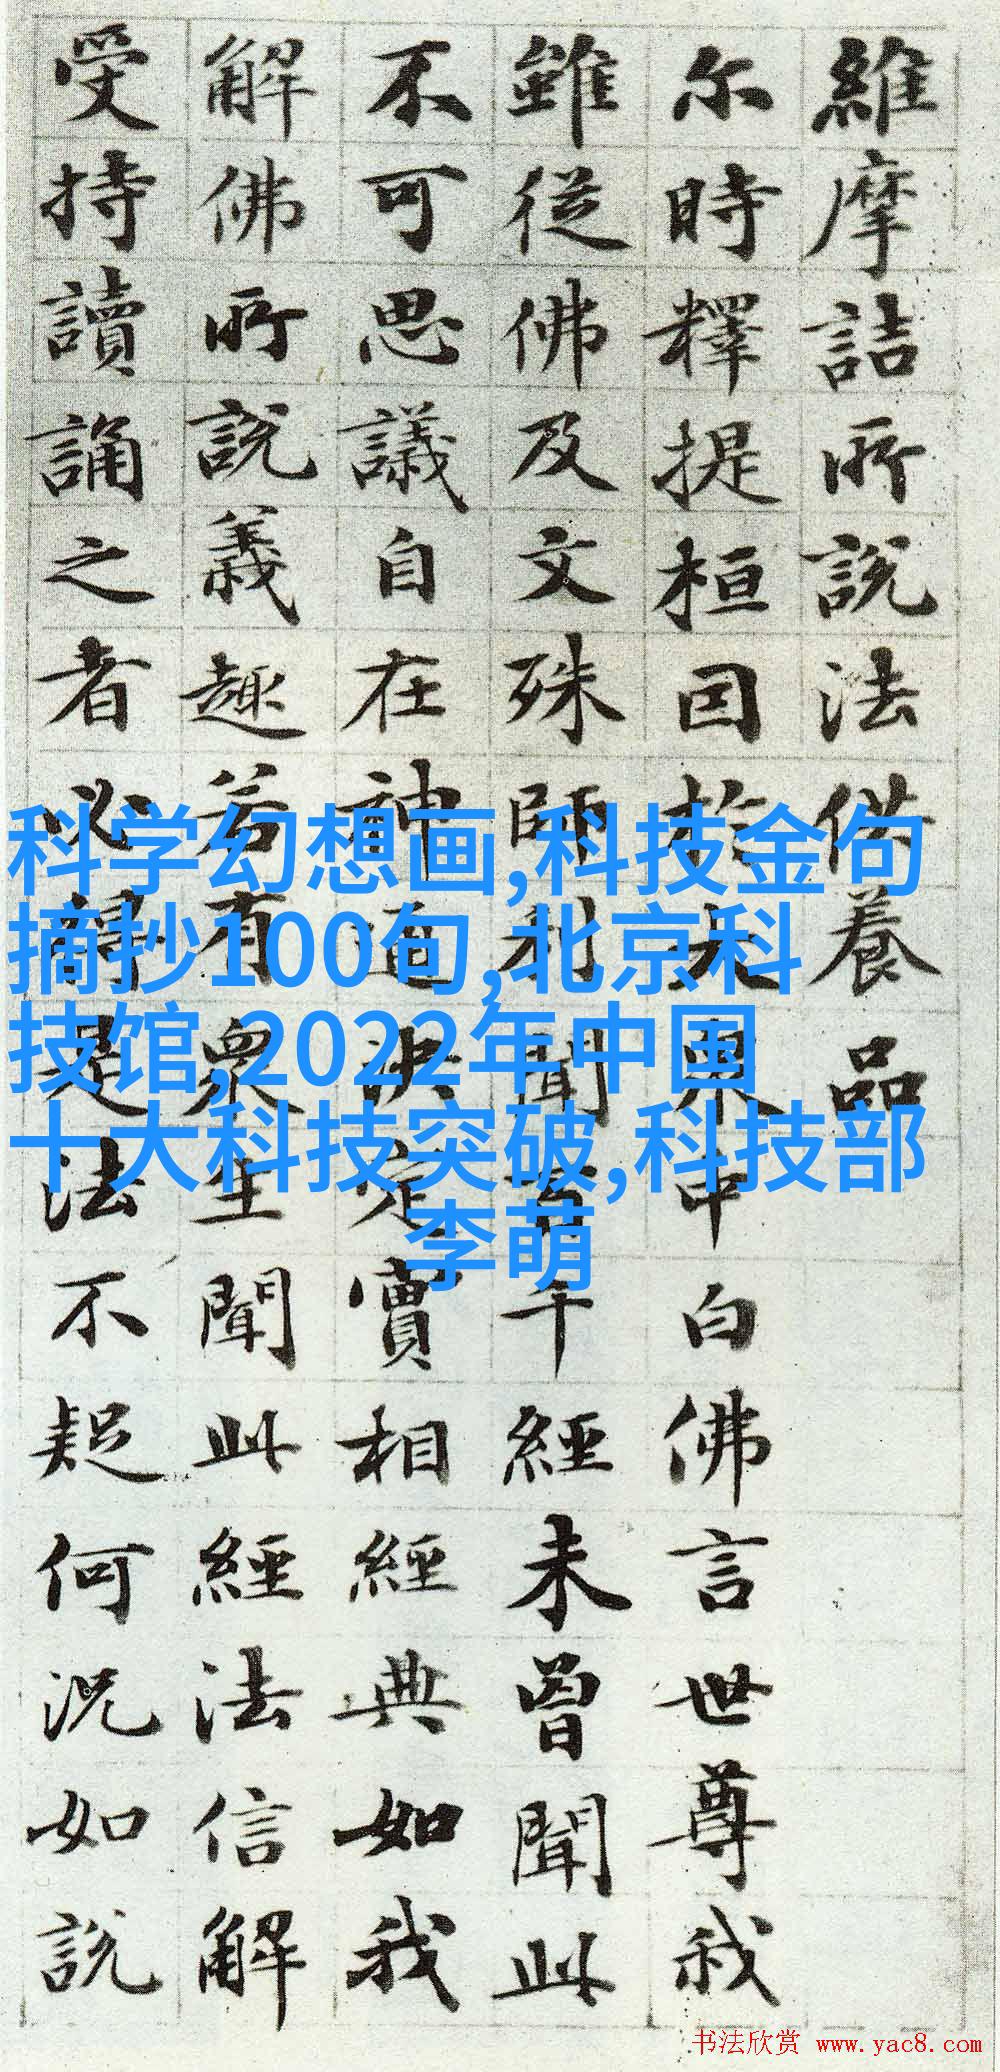 維摩詰所説法供養品
尔時釋提桓因於大衆中白佛言世尊我
雖從佛及文殊師利聞百千經未曾聞此
不可思議自在神通決定實相經典如我
解佛所説義趣若有衆生聞此經法信解
受持讀誦之者必得是法不疑何況如説
科学幻想画,科技金句
摘抄100句,北京科
技馆,2022年中国
十大科技突破,科技部
李萌
书法欣赏 www.yac8.com